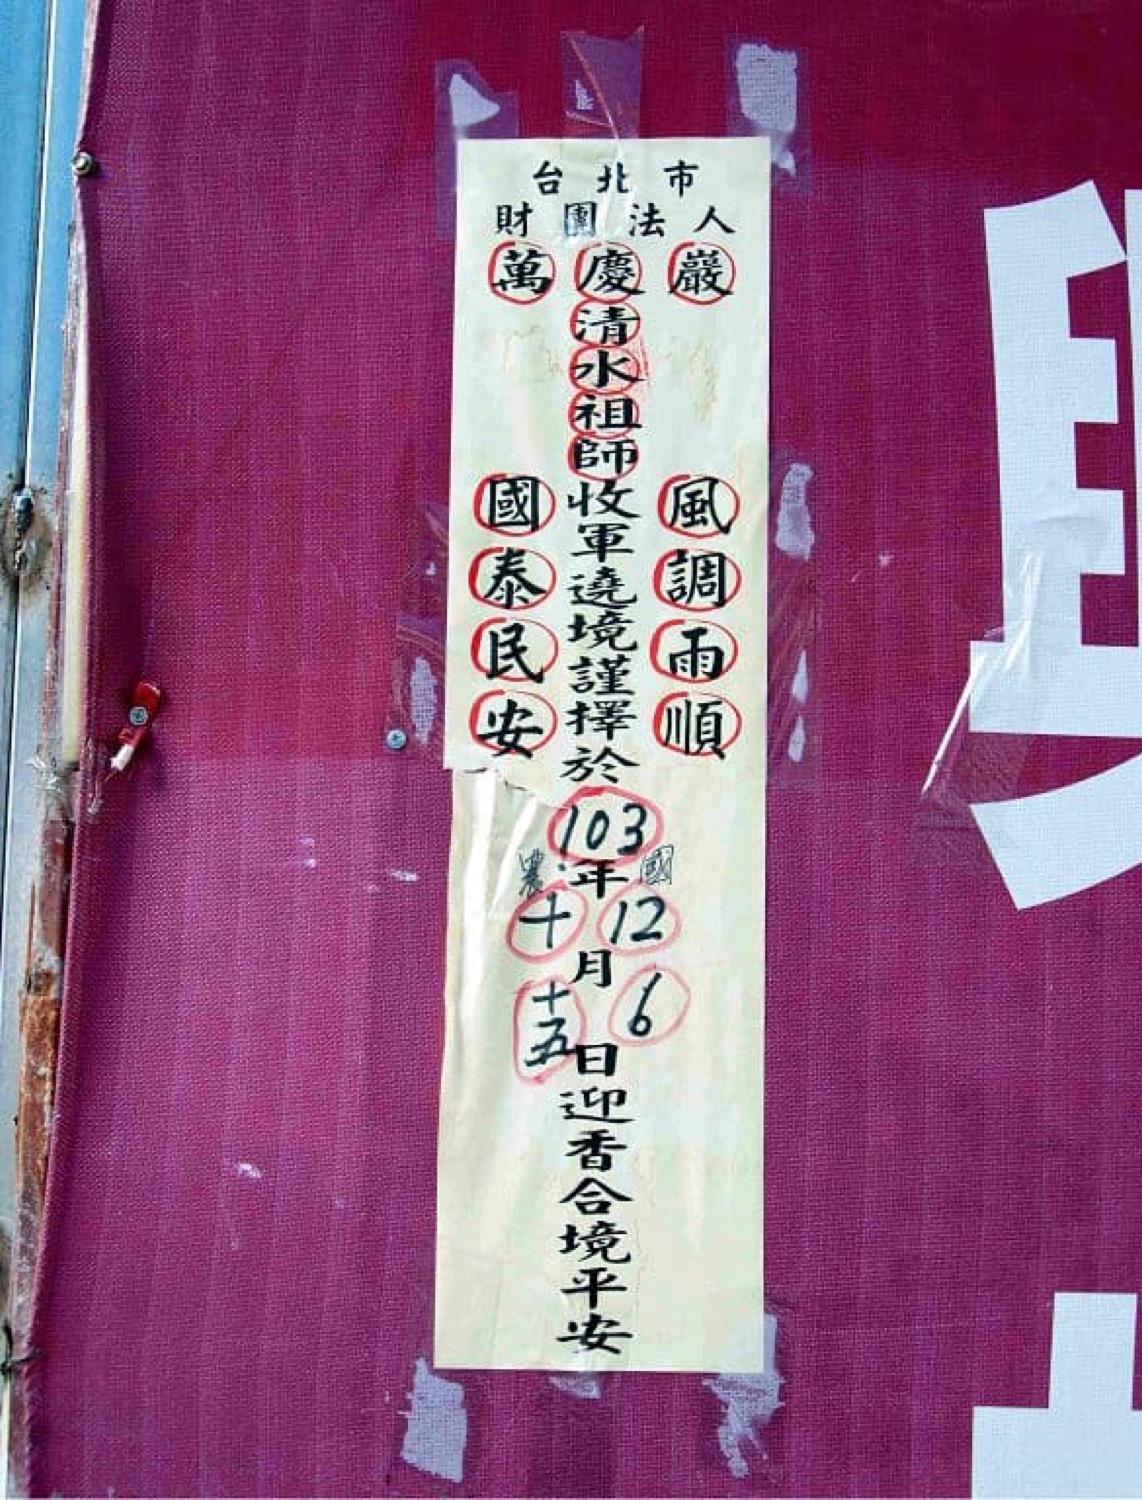 台北市
財團法人
萬慶巖
風調雨順
清水祖師收軍遶境謹擇於103年月日迎香合境平安
國 12 6
農 十 十五
國泰民安